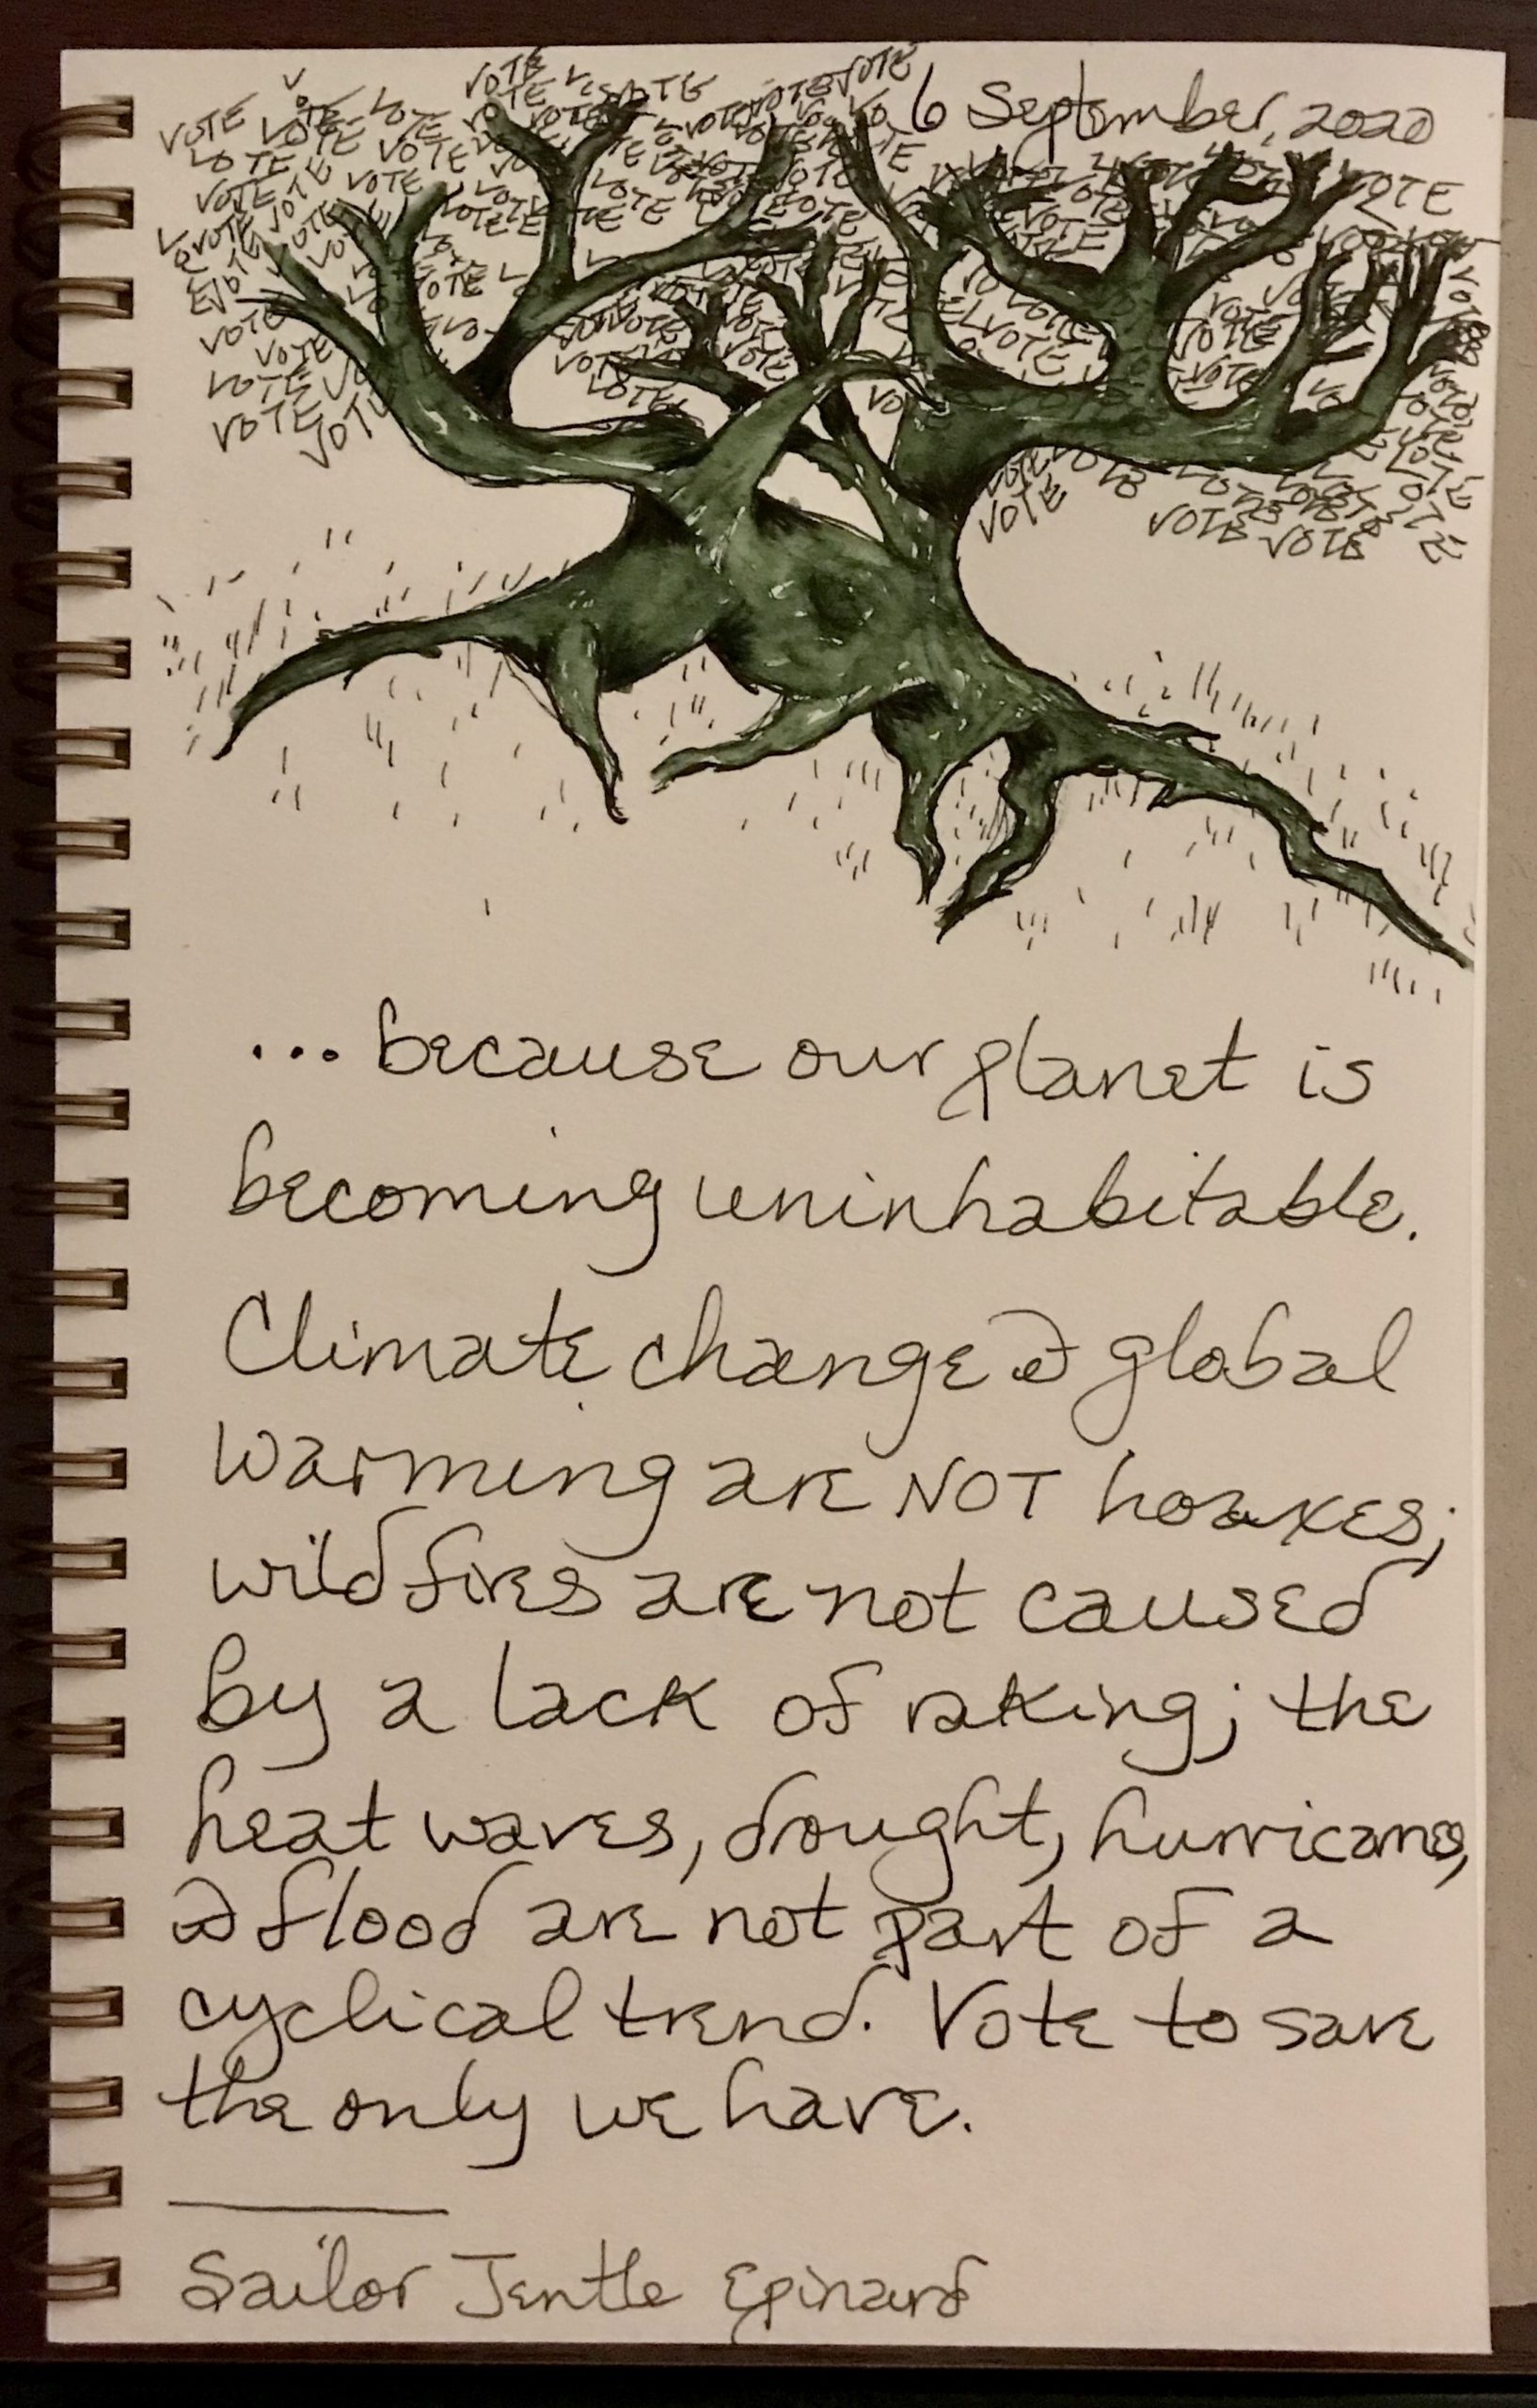 6 September, 2020
VOTE VOTE VOTE VOTE VOTE
VOTE VOTE VOTE VOTE VOTE
VOTE VOTE VOTE VOTE VOTE
... because our planet is
becoming uninhabitable.
Climate change & global
warming are NOT hoaxes;
wildfires are not caused
by a lack of raking; the
heat waves, drought, hurricanes,
& flood are not part of a
cyclical trend. Vote to save
the only we have.
Sailor Jentle Epinard